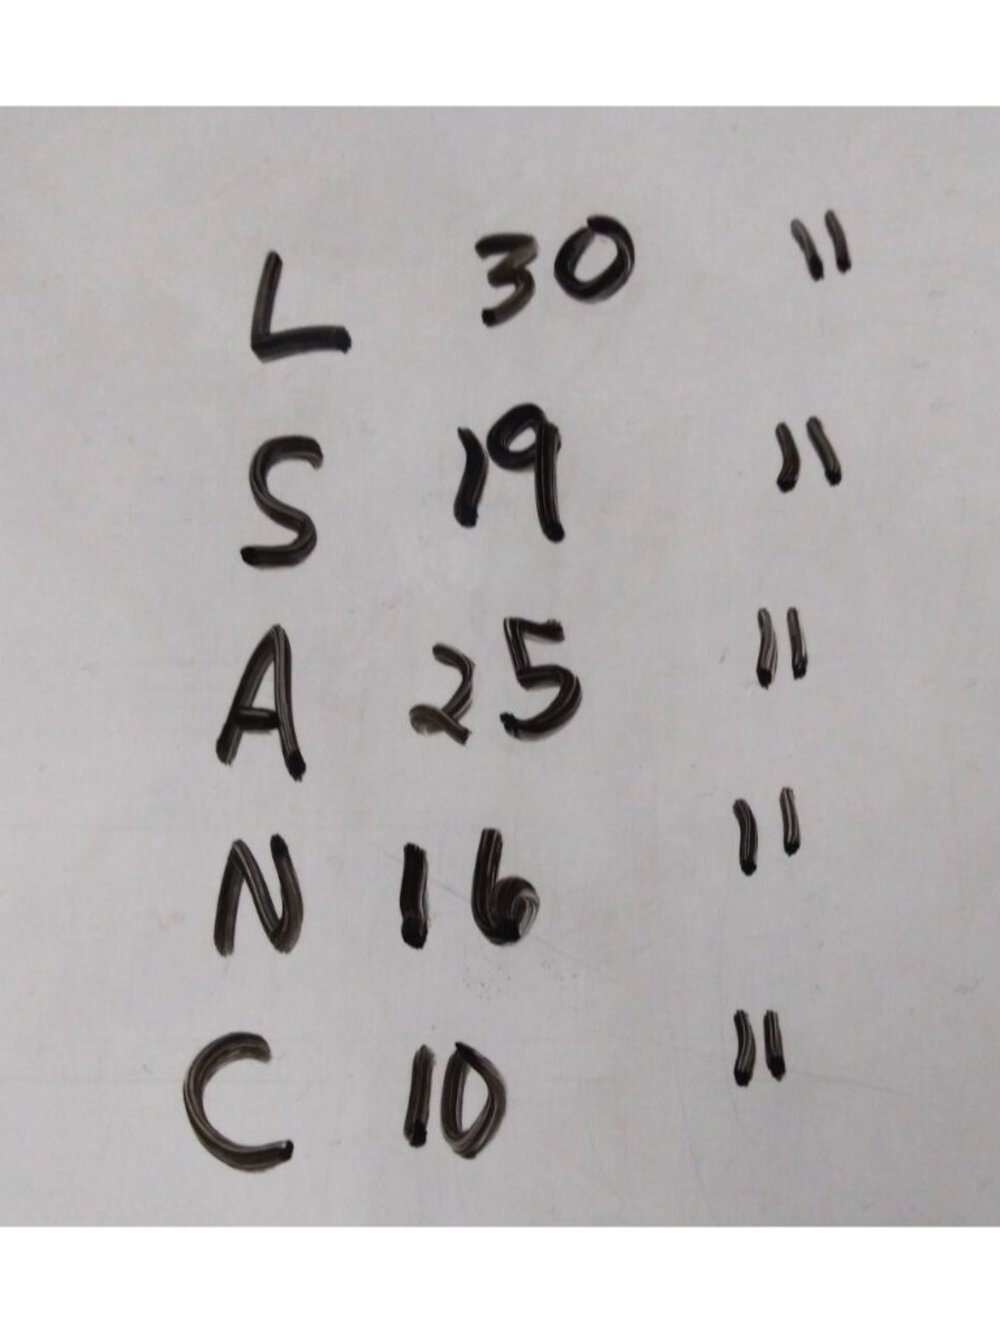 L 30 "
S 19 "
A 25 "
N 16 "
C 10 "